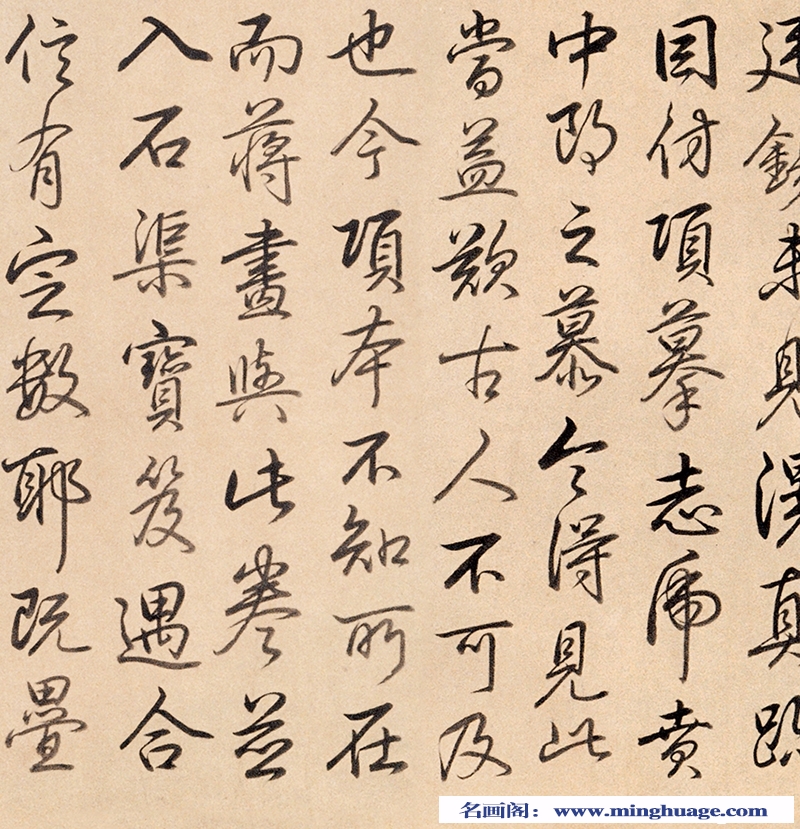 廷錫未見真跡
因仿項摹志虎賁
中郎之慕今得見此
當益歎古人不可及
也今項本不知所在
而蔣畫與此卷並
入石渠寶笈遇合
信有定數耶既疊
名画阁：www.minghuage.com